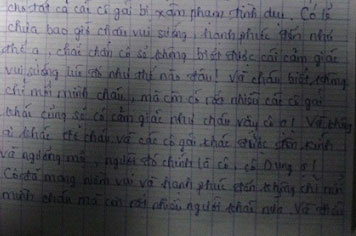 cho tất cả các cô gái bị xâm phạm tình dục. Có lẽ
chưa bao giờ cháu vui sướng, hạnh phúc đến như
thế ạ, chắc chắn cô sẽ không biết được cái cảm giác
vui sướng lúc đó như thế nào đâu! Và cháu biết, không
chỉ mỗi mình cháu, mà còn có rất nhiều các cô gái
khác cũng sẽ có cảm giác như cháu vậy cô ạ! Và không
ai khác cháu và các cô gái khác được
và ngưỡng mộ, người đó chính là cô, cô Dung ạ!
Cô đã mang niềm vui và hạnh phúc đến không chỉ mỗi
mình cháu mà còn rất nhiều người khác nữa. Và cháu